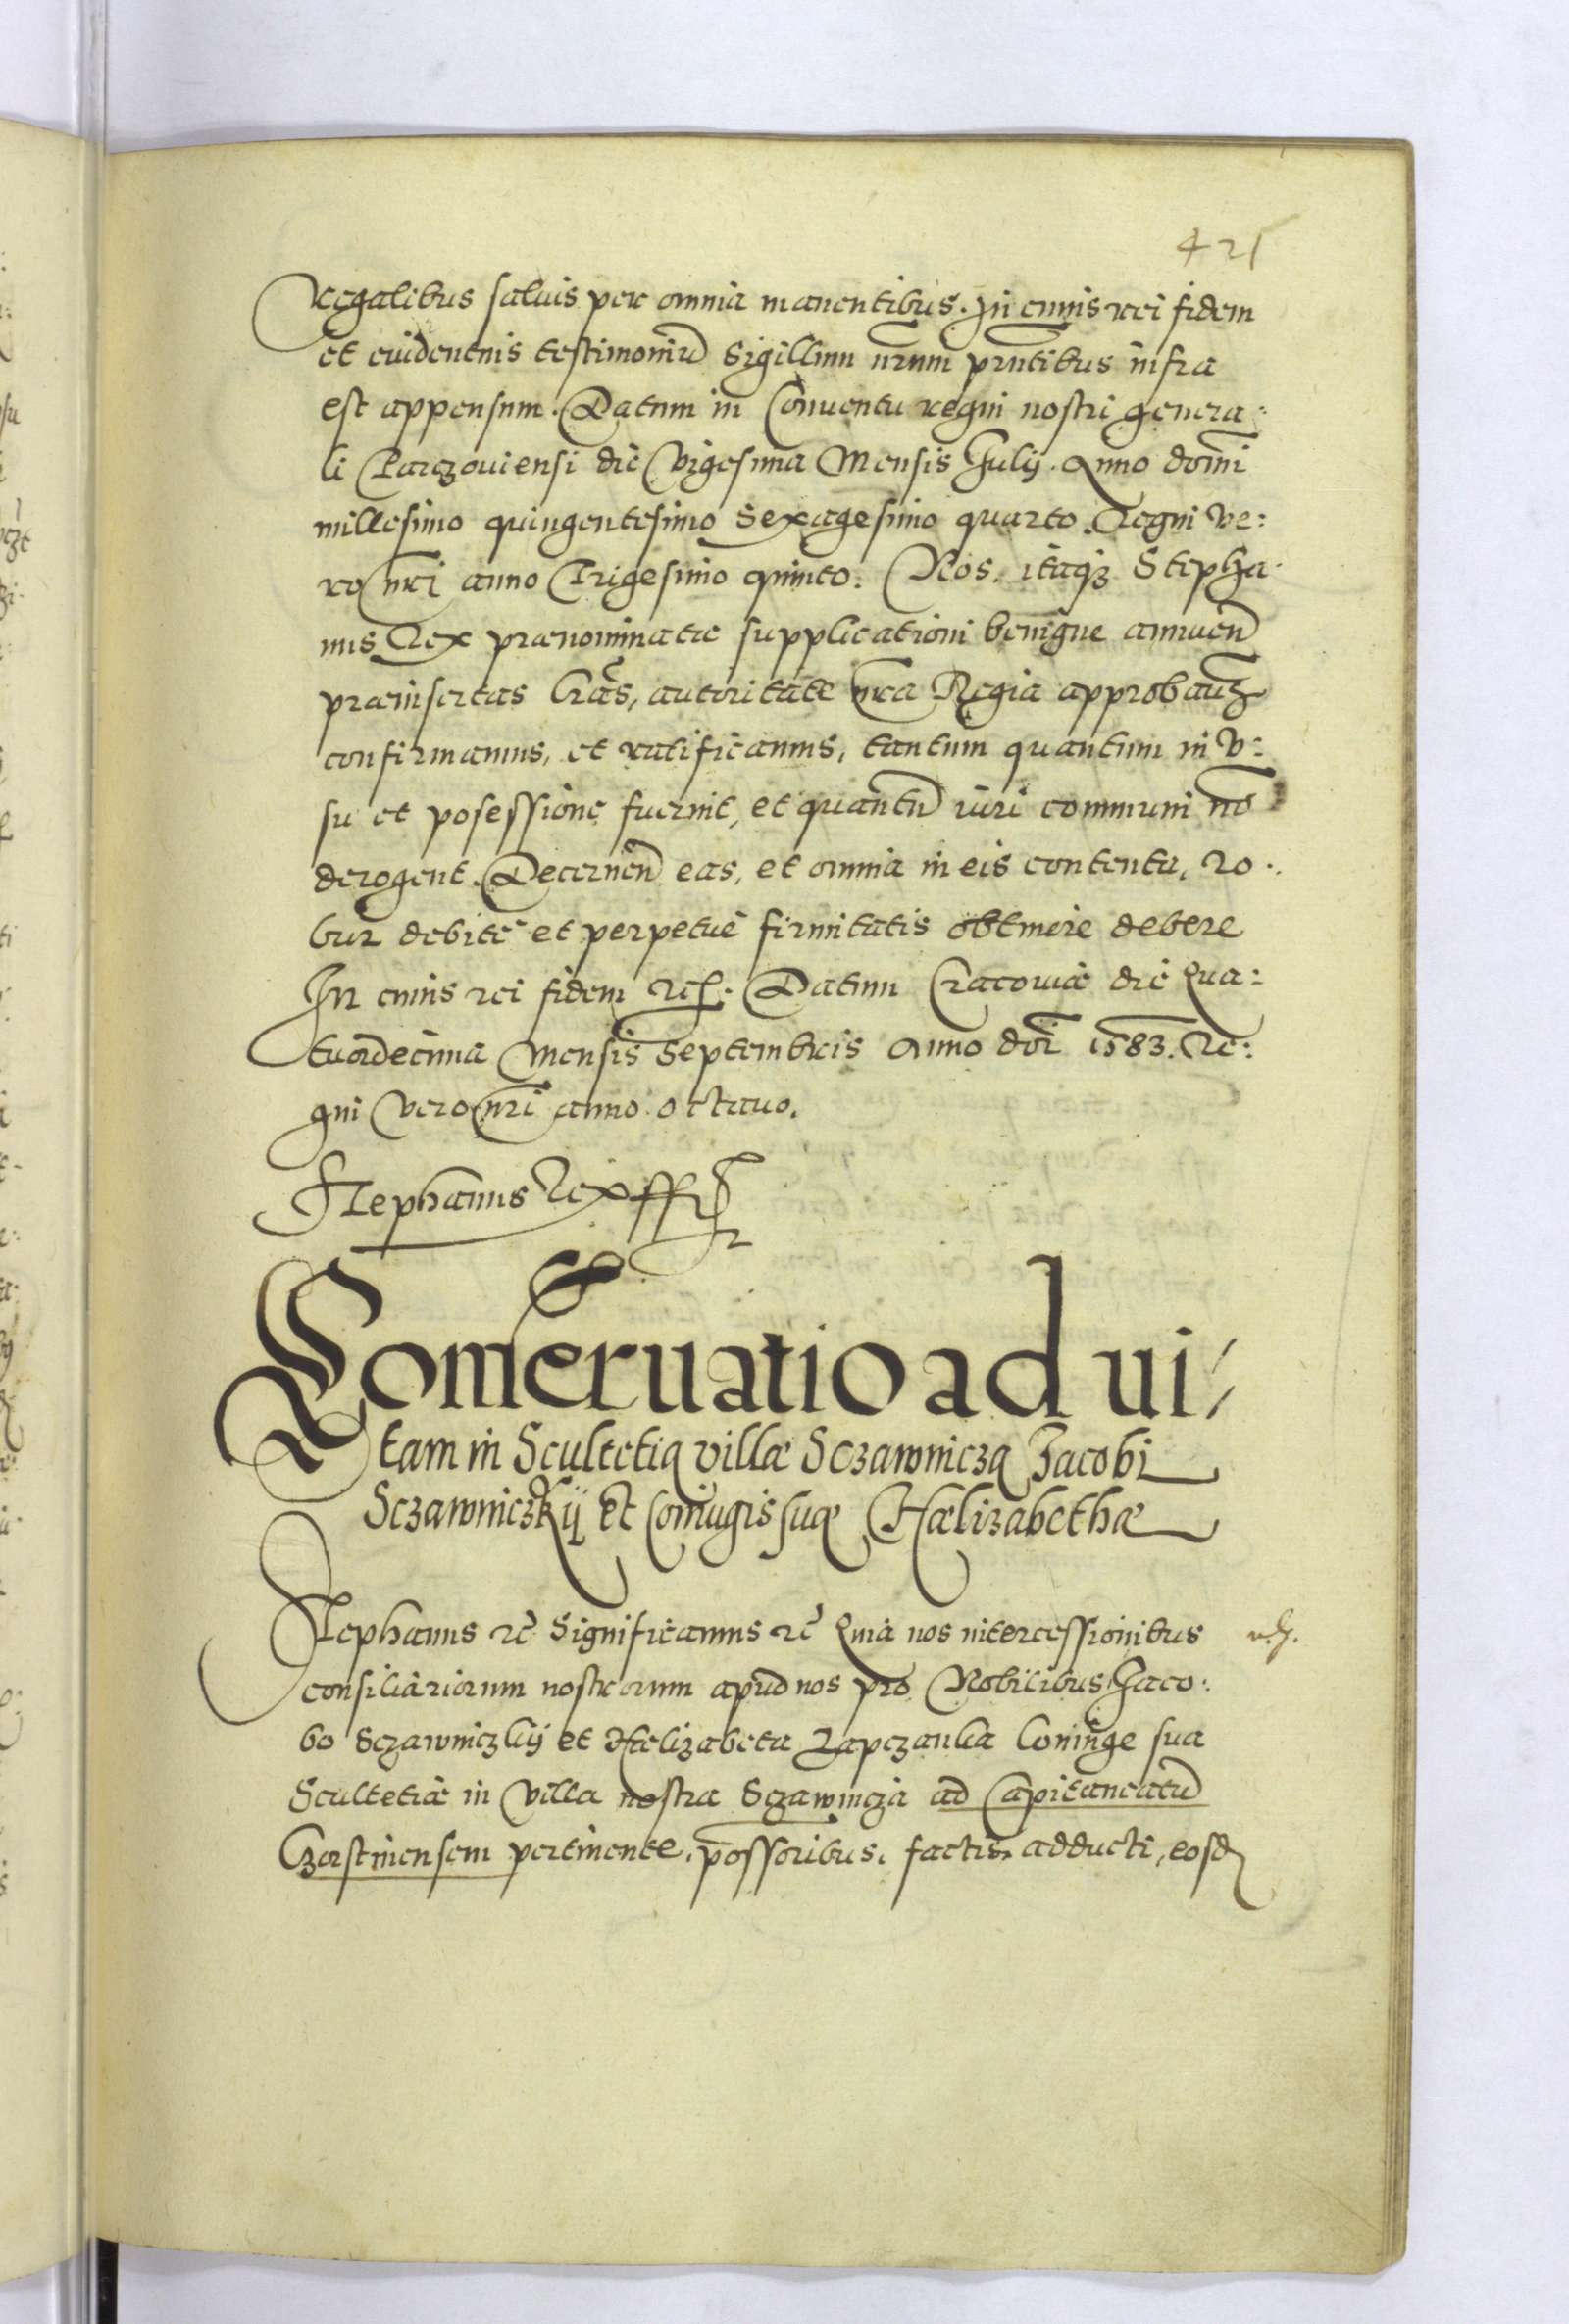 421
Regalibus saluis per omnia manentibus. In cuius rei fidem
et euidentius testimoniũ Sigillum nr̃um prñtibus infra
est appensum. Datum in Conuentu regni nostri genera:
li Parczouiensi die Vigesima Mensis Julij. Anno domĩ
millesimo quingentesimo Sexagesimo quarto. Regni ve:
ro nr̃i anno Trigesimo quinto. Nos. itaqȝ Stepha:
nus Rex prænominatæ supplicationi benigne annuen̄
præinsertas lr̃as, autoritate nr̃a Regia approbauȝ
confirmamus, et ratificamus, tantum quantum in v:
su et posessione fuerint, et quantũ iuri communi nõ
derogent. Decernen̄ eas, et omnia in eis contenta, ro:
bur debite et perpetue firmitatis obtinere debere
In cuius rei fidem etc. Datum Cracouiæ die Qua:
tuordecima Mensis Septembris Anno doĩ 1583. Re:
gni vero nr̃i anno octauo.
Stephanus Rex sst
Conseruatio ad vi/
tam in Scultetia villæ Sczawnicza Jacobi
Sczawniczkij et Coniugis suæ Hælizabethæ
Stephanus etc̃ Significamus etc̃ Quia nos intercessionibus
consiliariorum nostrorum apud nos pro Nobilibus Jaco:
bo Sczawniczkij et Hælizabeta Lapczanka Coniuge sua
Scultetiæ in Villa nostra Sczawnicza ad Capitaneatũ
Czorstinensem pertinente. possoribus. factis. adducti, eosd̃